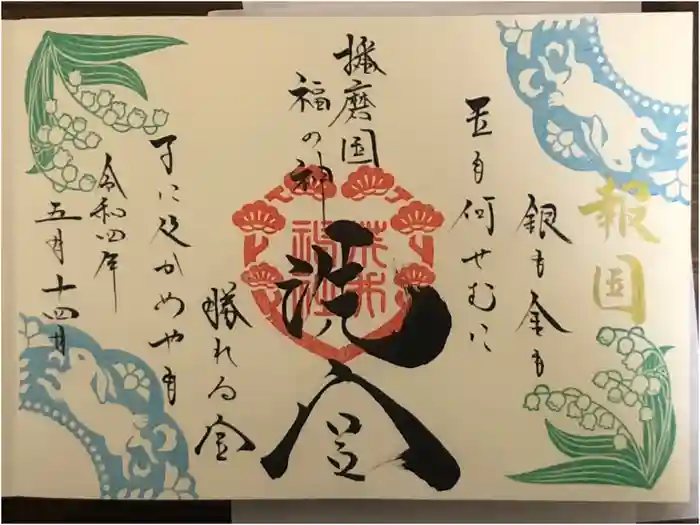 報国
銀も金も
玉も何せむに
播磨国
福の神
荒井
神社
洗
勝れる
子に及かめやも
令和四年
五月十四日